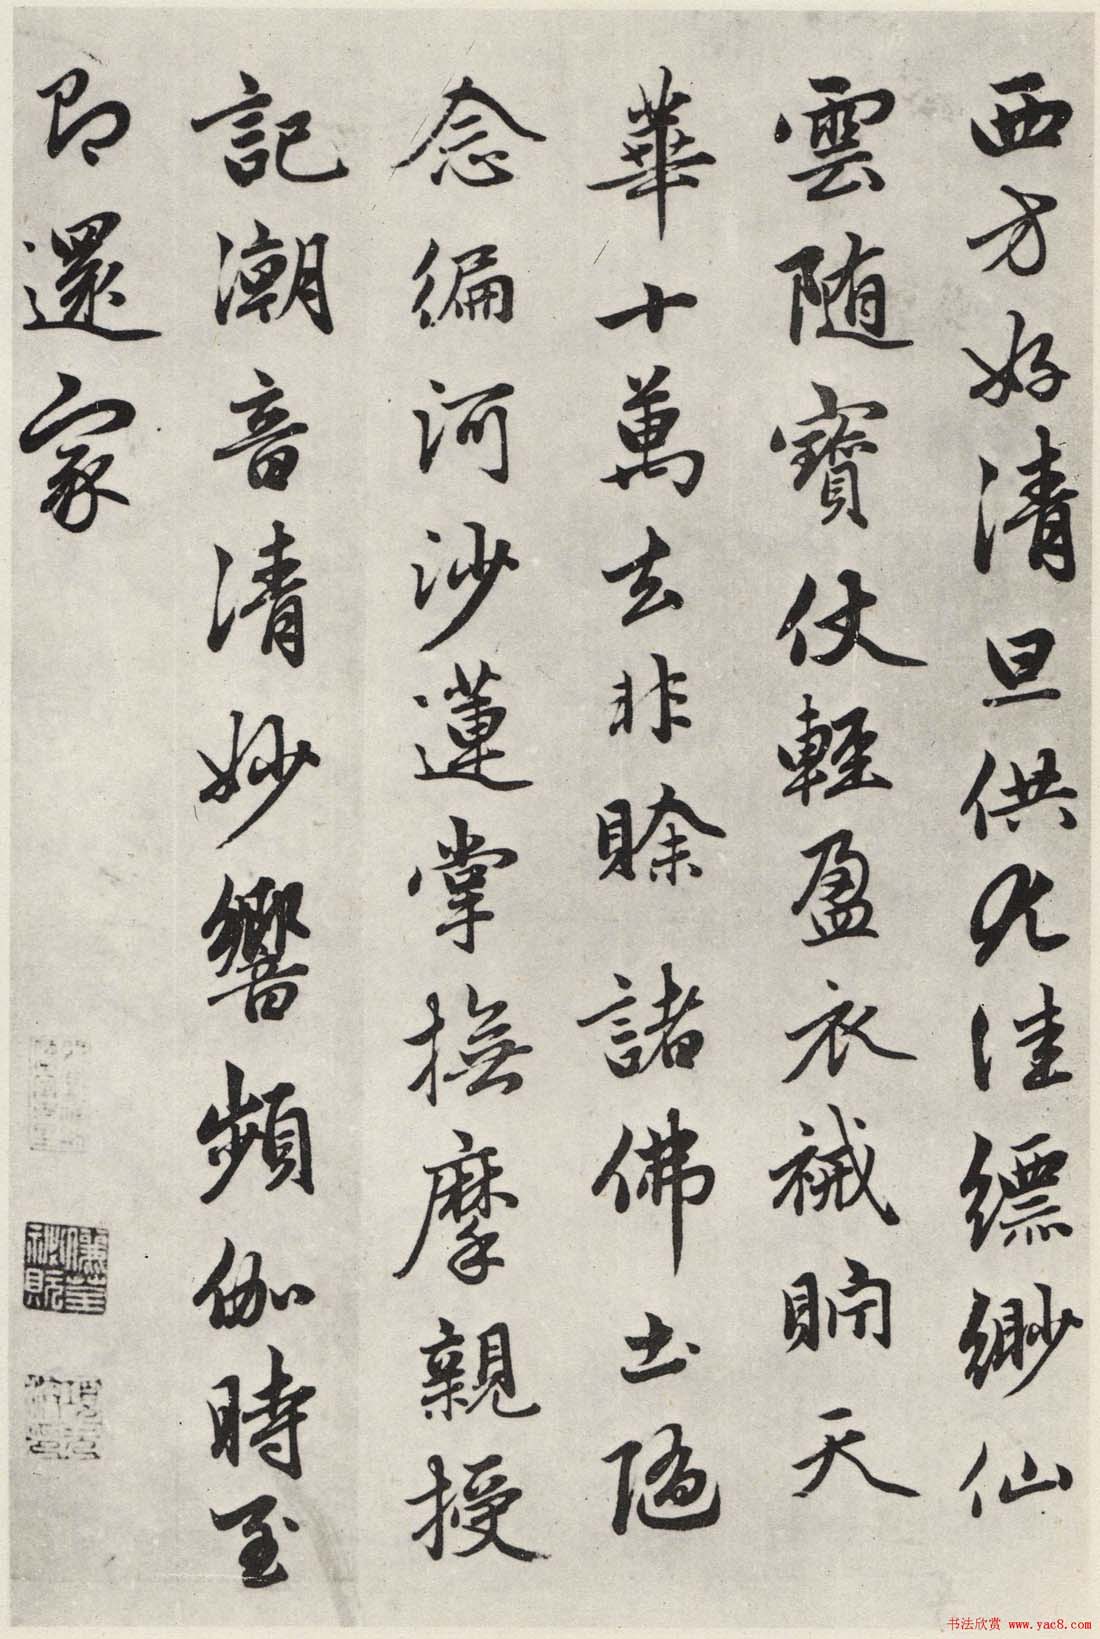 西方好清旦供尤佳縹緲仙
雲随寶仗輕盈衣裓貯天
華十萬去非賒諸佛土隨
念徧河沙蓮掌撫摩親授
記潮音清妙響頻伽時至
即還家
书法欣赏 www.yac8.com